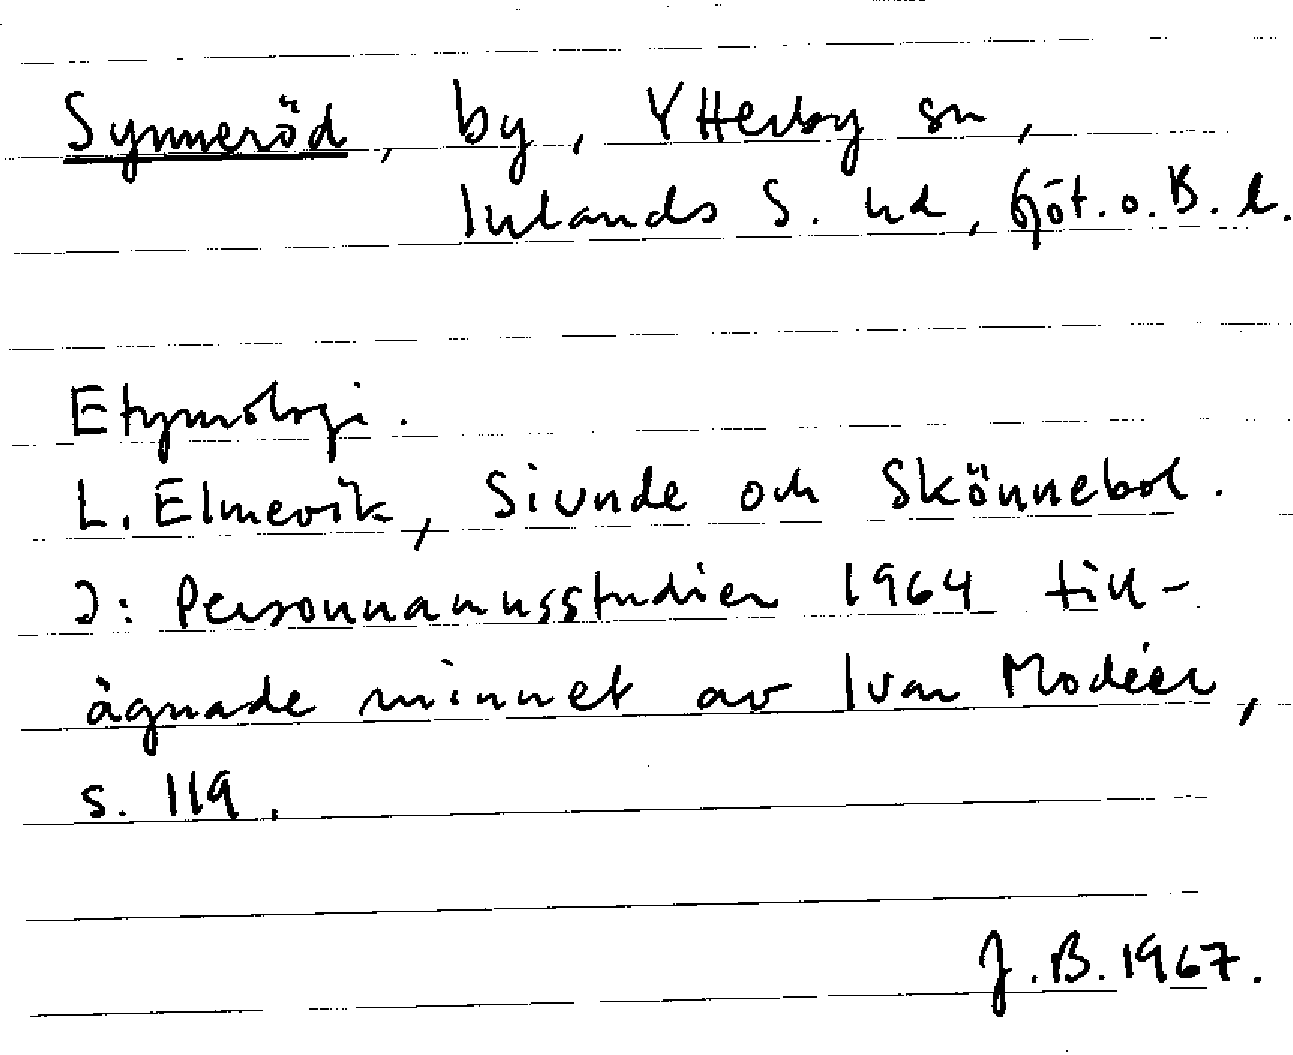 Synneröd, by, Ytterby sn,
Inlands S. hd, Göt. o. B. l.
Etymologi.
L. Elmevik, Siunde och Skönnebol.
I: Personnamnsstudier 1964 till-
ägnade minnet av Ivar Modéer,
s. 119.
J. B. 1967.